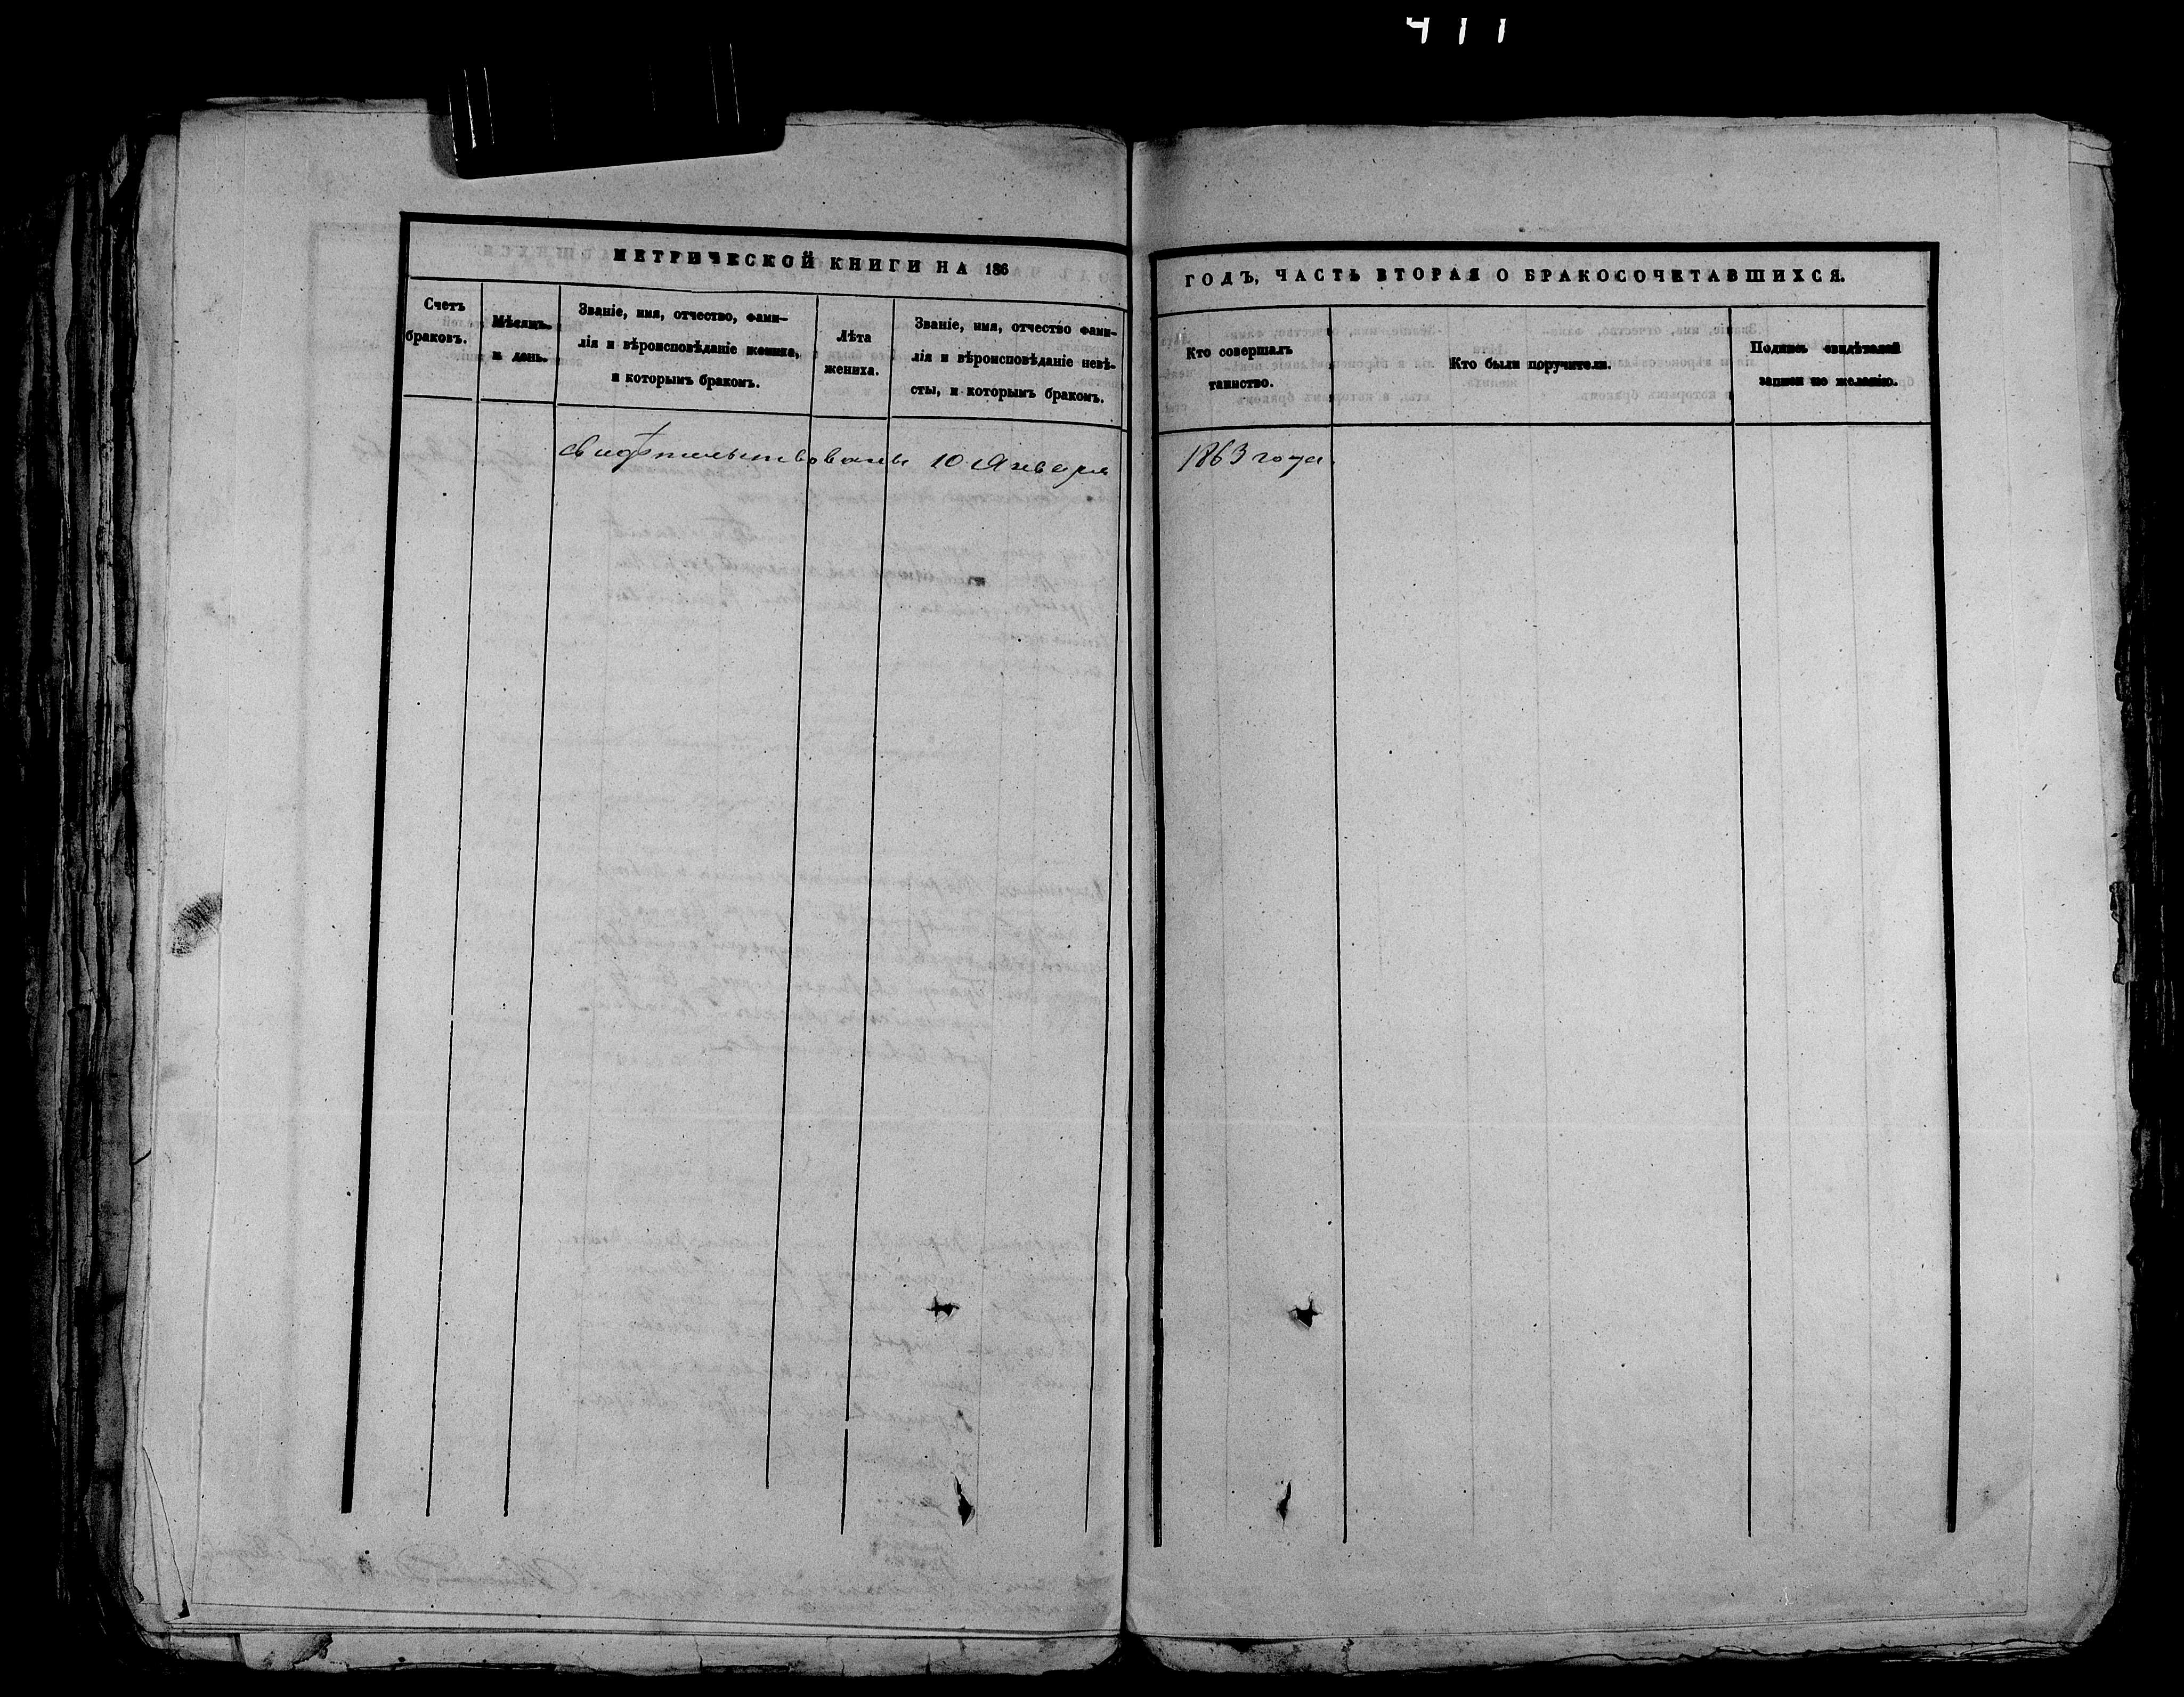 411
МЕТРИЧЕСКОЙ КНИГИ НА 186
Счетъ
браковъ.
Мѣсяцъ
и день.
Званіе, имя, отчество, фами-
лія и вѣроисповѣданіе жениха,
и которымъ бракомъ.
Лѣта
жениха.
Званіе, имя, отчество фами-
лія и вѣроисповѣданіе невѣ-
сты, и которымъ бракомъ.
свидѣтельствованы 10 Января
ГОДЪ, ЧАСТЬ ВТОРАЯ О БРАКОСОЧЕТАВШИХСЯ.
Кто совершалъ
таинство.
Кто были поручители.
Подпись свидѣтелей
записи по желанію.
1863 года.